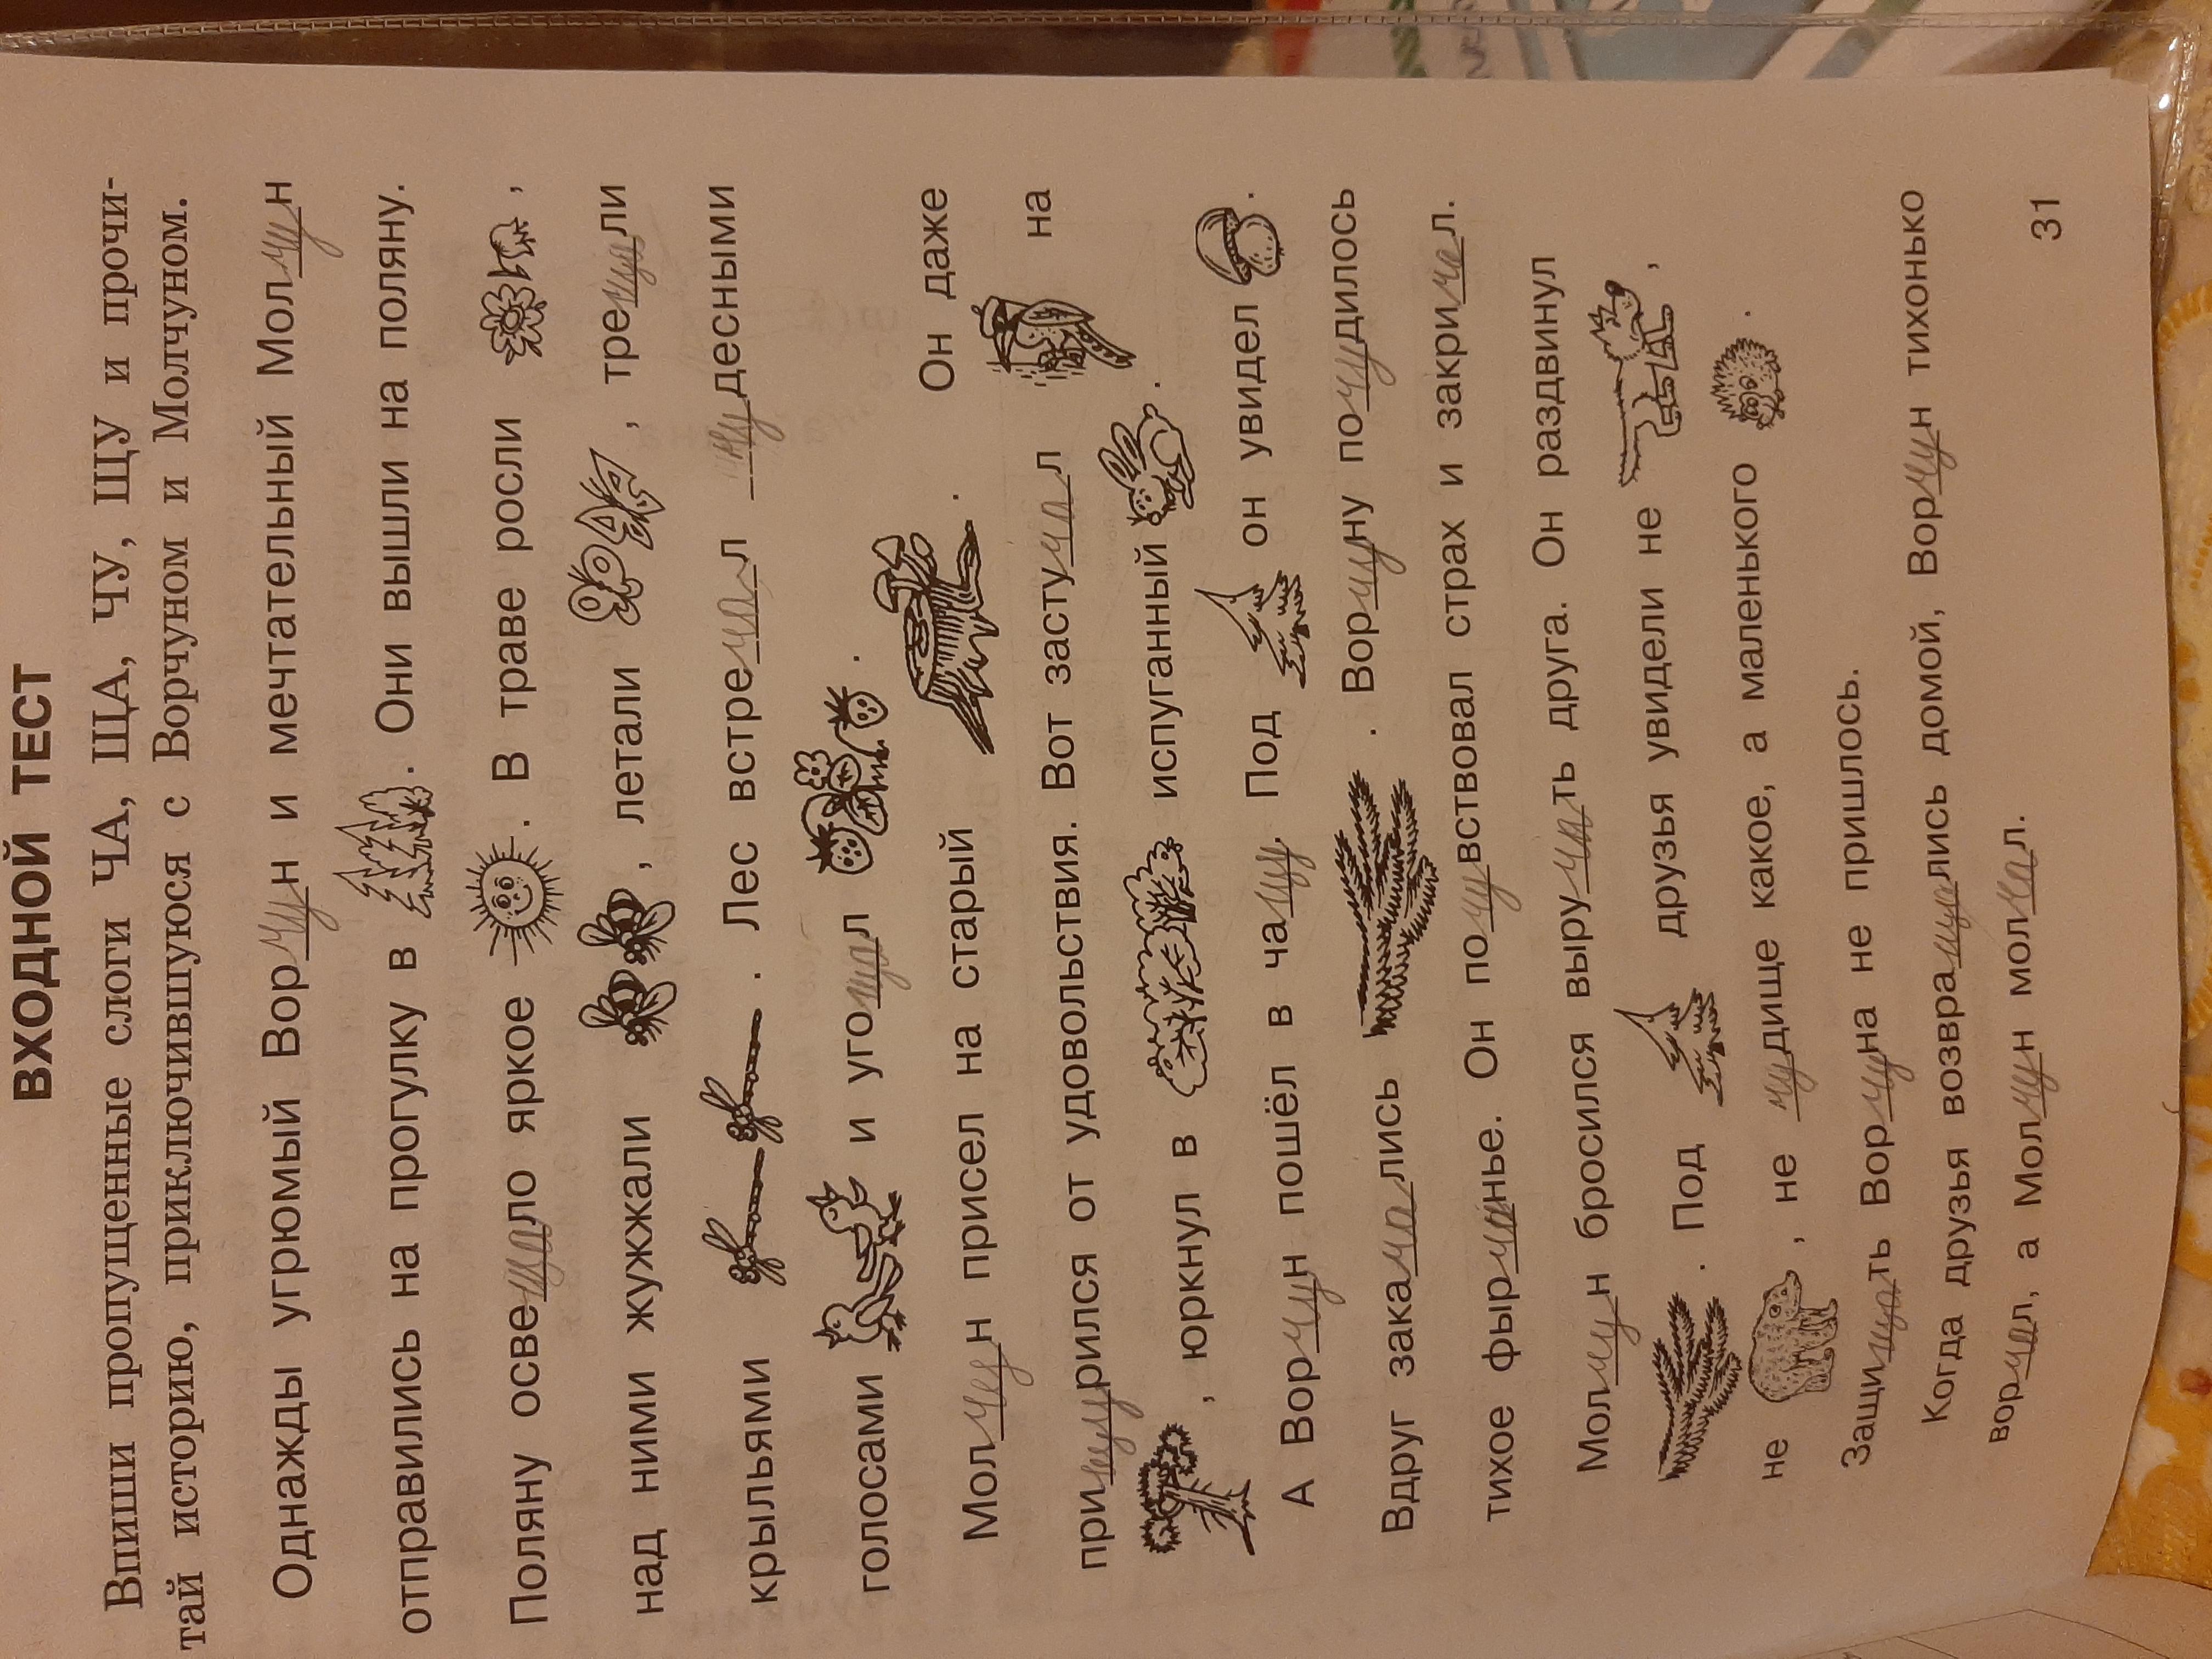 ВХОДНОЙ ТЕСТ
Впиши пропущенные слоги ЧА, ЩА, ЧУ, ЩУ и прочи-
тай историю, приключившуюся с Ворчуном и Молчуном.
Однажды угрюмый Ворчун и мечтательный Молчун
отправились на прогулку в . Они вышли на поляну.
Поляну освещало яркое . В траве росли ,
над ними жужжали , летали , трещали
крыльями . Лес встречал чудесными
голосами и угощал .
Молчун присел на старый . Он даже
прищурился от удовольствия. Вот застучал на
, юркнул в испуганный .
А Ворчун пошёл в чащу. Под он увидел .
Вдруг закачались . Ворчуну почудилось
тихое фырчанье. Он почувствовал страх и закричал.
Молчун бросился выручать друга. Он раздвинул
. Под друзья увидели не ,
не , не чудище какое, а маленького .
Защищать Ворчуна не пришлось.
Когда друзья возвращались домой, Ворчун тихонько
ворчал, а Молчун молчал.
31